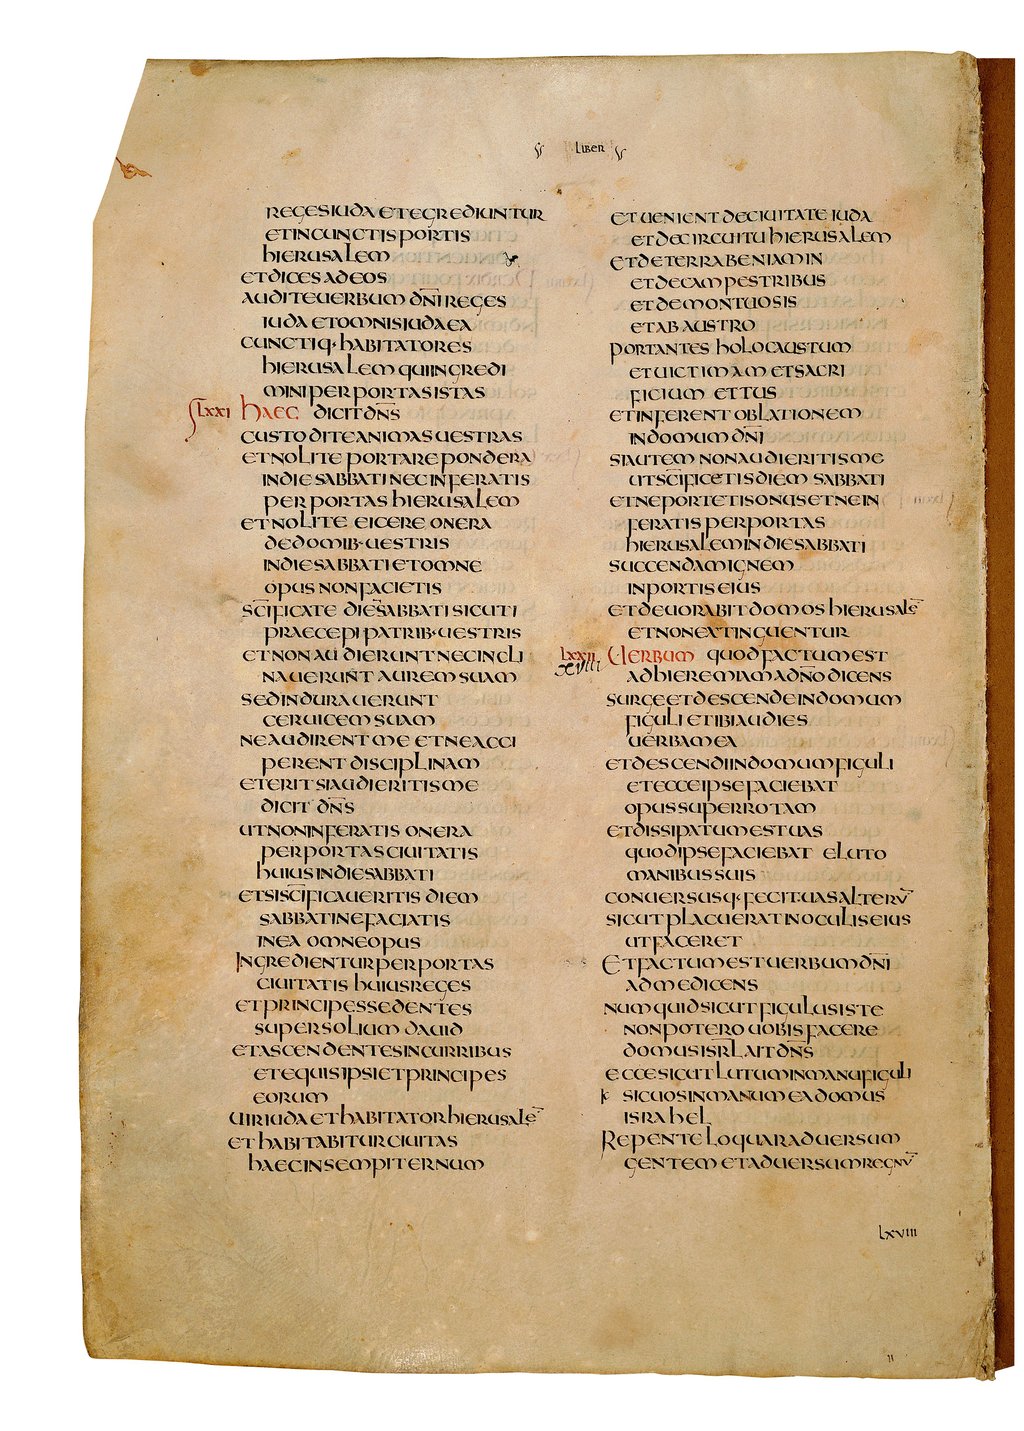 LIBER
REGES IUDA ET EGREDIUNTUR
ET IN CUNCTIS PORTIS
HIERUSALEM
ET DICES AD EOS
AUDITE UERBUM DN̄I REGES
IUDA ET OMNIS IUDAEA
CUNCTIQ· HABITATORES
HIERUSALEM QUI INGREDI
MINI PER PORTAS ISTAS
LXXI HAEC DICIT DN̄S
CUSTODITE ANIMAS UESTRAS
ET NOLITE PORTARE PONDERA
IN DIE SABBATI NEC INFERATIS
PER PORTAS HIERUSALEM
ET NOLITE EICERE ONERA
DE DOMIB· UESTRIS
IN DIE SABBATI ET OMNE
OPUS NON FACIETIS
SC̄IFICATE DIE SABBATI SICUTI
PRAECEPI PATRIB· UESTRIS
ET NON AUDIERUNT NEC INCLI
NAUERUNT AUREM SUAM
SED INDURAUERUNT
CERUICEM SUAM
NE AUDIRENT ME ET NE ACCI
PERENT DISCIPLINAM
ET ERIT SI AUDIERITIS ME
DICIT DN̄S
UT NON INFERATIS ONERA
PER PORTAS CIUITATIS
HUIUS IN DIE SABBATI
ET SI SC̄IFICAUERITIS DIEM
SABBATI NE FACIATIS
IN EA OMNE OPUS
INGREDIENTUR PER PORTAS
CIUITATIS HUIUS REGES
ET PRINCIPES SEDENTES
SUPER SOLIUM DAUID
ET ASCENDENTES IN CURRIBUS
ET EQUIS IPSI ET PRINCIPES
EORUM
UIRI UDA ET HABITATOR HIERUSALĒ
ET HABITABITUR CIUITAS
HAEC IN SEMPITERNUM
ET UENIENT DE CIUITATE IUDA
ET DE CIRCUITU HIERUSALEM
ET DE TERRA BENIAMIN
ET DE CAMPESTRIBUS
ET DE MONTUOSIS
ET AB AUSTRO
PORTANTES HOLOCAUSTUM
ET UICTIMAM ET SACRI
FICIUM ET TUS
ET INFERENT OBLATIONEM
IN DOMUM DN̄I
SI AUTEM NON AUDIERITIS ME
UT SC̄IFICETIS DIEM SABBATI
ET NE PORTETIS ONUS ET NE IN
FERATIS PER PORTAS
HIERUSALEM IN DIE SABBATI
SUCCENDAM IGNEM
IN PORTIS EIUS
ET DEUORABIT DOMOS HIERUSALĒ
ET NON EXTINGUENTUR
LXXII UERBUM QUOD FACTUM EST
XVIII
AD HIEREMIAM A DN̄O DICENS
SURGE ET DESCENDE IN DOMUM
FIGULI ET IBI AUDIES
UERBA MEA
ET DESCENDI IN DOMUM FIGULI
ET ECCE IPSE FACIEBAT
OPUS SUPER ROTAM
ET DISSIPATUM EST UAS
QUOD IPSE FACIEBAT E LUTO
MANIBUS SUIS
CONUERSUSQ· FECIT UAS ALTERŪ
SICUT PLACUERAT IN OCULIS EIUS
UT FACERET
ET FACTUM EST UERBUM DN̄I
AD ME DICENS
NUMQUID SICUT FIGULUS ISTE
NON POTERO UOBIS FACERE
DOMUS ISRL̄ AIT DN̄S
ECCE SICUT LUTUM IN MANU FIGULI
SIC UOS IN MANU MEA DOMUS
ISRAHEL
REPENTE LOQUAR ADUERSUM
GENTEM ET ADUERSUM REGNŪ
LXVIII